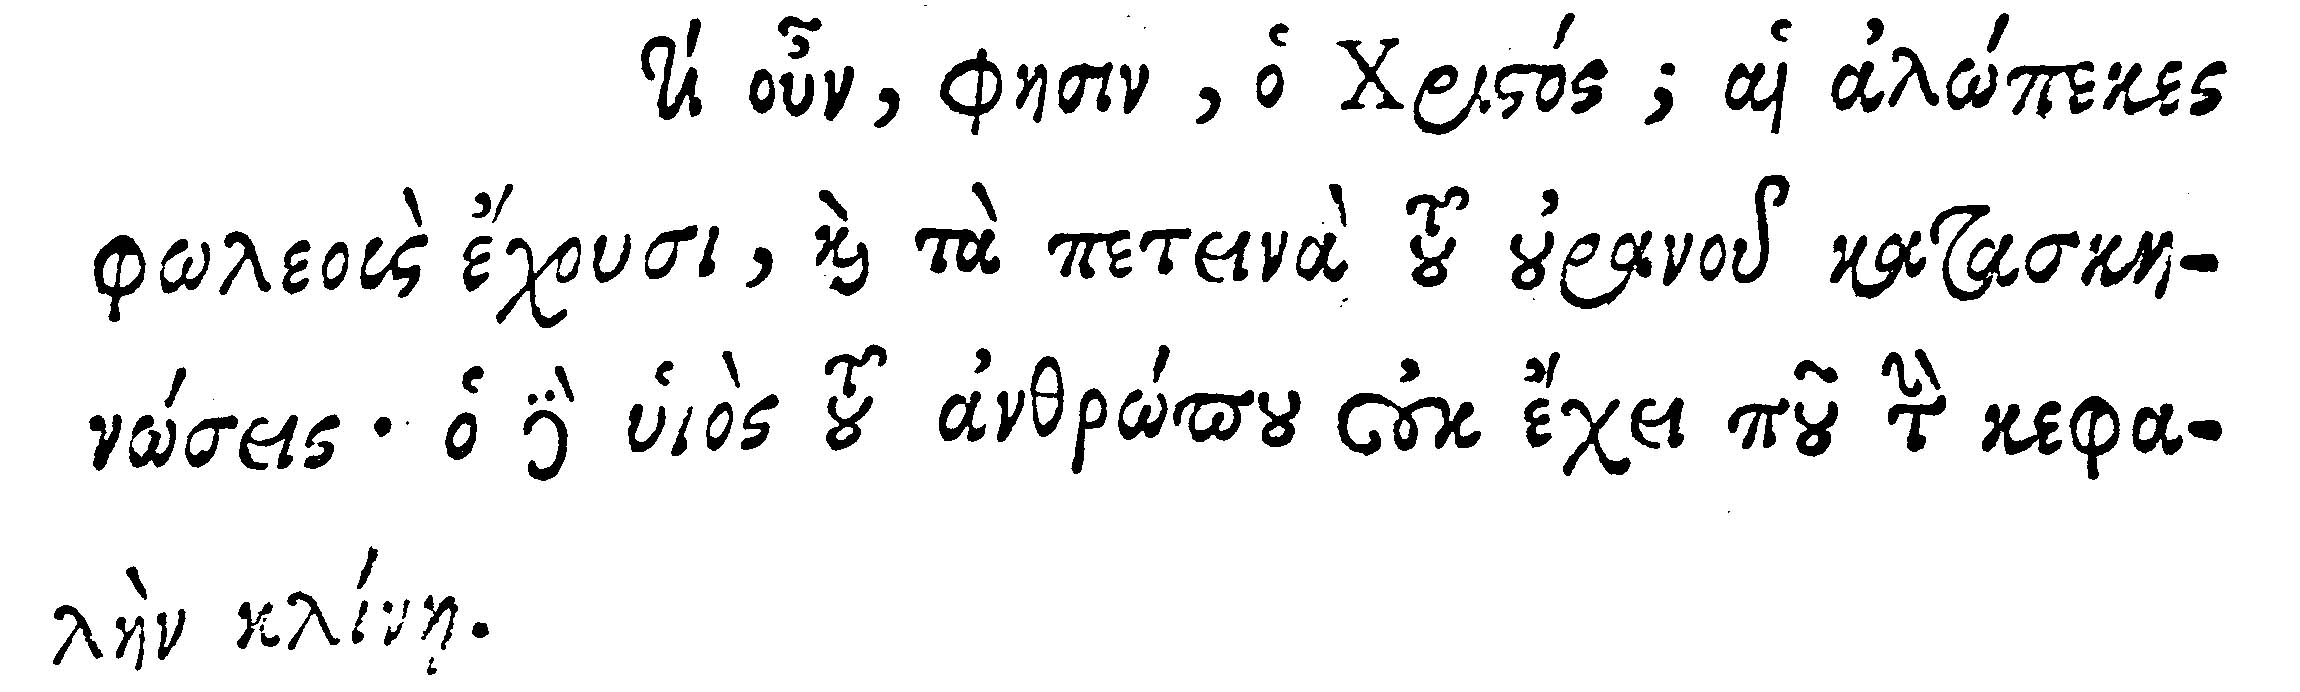 Τί οὖν, φησιν, ὁ Χριστός; αἱ ἀλώπεκες
φωλεοὺς ἔχουσι, καὶ τὰ πετεινὰ τοῦ οὐρανοῦ κατασκη-
νώσεις· ὁ δὲ υἱὸς τοῦ ἀνθρώπου οὐκ ἔχει ποῦ τὴν κεφα-
λὴν κλίνῃ.